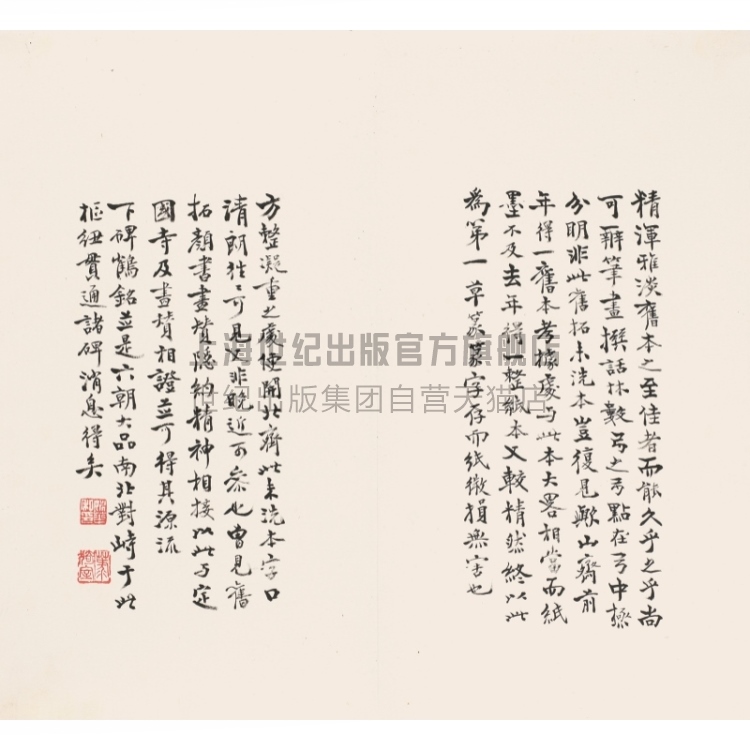 精渾雅淡舊本之至佳者而能久乎之乎尚
可辨筆畫撰話林數弓之弓點在弓中極
分明非此舊拓未洗本豈復見歟山齋前
年得一舊本考據處与此本大畧相當而紙
墨不及去年得一整紙本又較精然終以此
爲第一草篆篆字存而紙微損無害也
方整凝重之處便開北齊此未洗本字口
清朗往〻可見又非晚近可參也曾見舊
拓顏書畫贊隱約精神相接以此与定
國寺及畫贊相證並可得其源流
下碑鶴銘並是六朝大品南北對峙于此
樞紐貫通諸碑消息得矣
上海世纪出版官方旗舰店
世纪出版集团自营天猫店